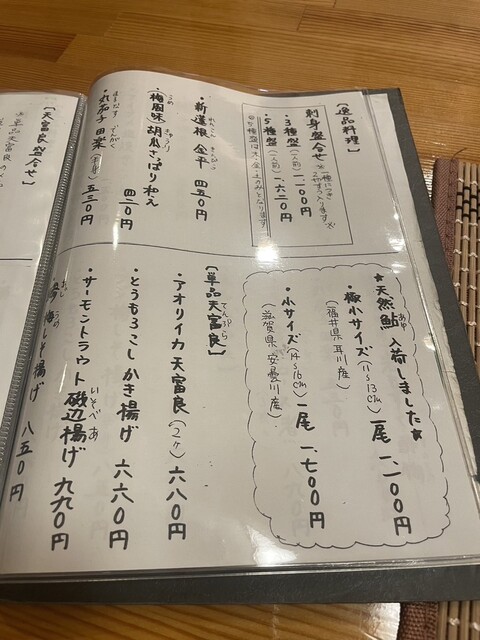 【逸品料理】
刺身盛合せ ※一種につき2切ずつ入ります※
・3種盛(一人前) 一、一〇〇円
・5種盛(一人前) 一、六二〇円
・新蓮根金平 四五〇円
れんこん きんぴら
・(梅風味)胡瓜さっぱり和え 四二〇円
うめ きゅうり
・丸茄子田楽 五三〇円
まるなす でんがく
★天然鮎入荷しました★
あゆ
・極小サイズ(11~13cm) 一尾 一、二〇〇円
(福井県 耳川産)
・小サイズ(14~16cm) 一尾 一、七〇〇円
(滋賀県 安曇川産)
【単品天富良】
てんぷら
・アオリイカ天富良(2ヶ) 六八〇円
・とうもろこしかき揚げ 六六〇円
・サーモントラウト磯辺揚げ 九九〇円
いそべあ
梅しそ揚げ 八五〇円
うめ
【天富良盛合せ】